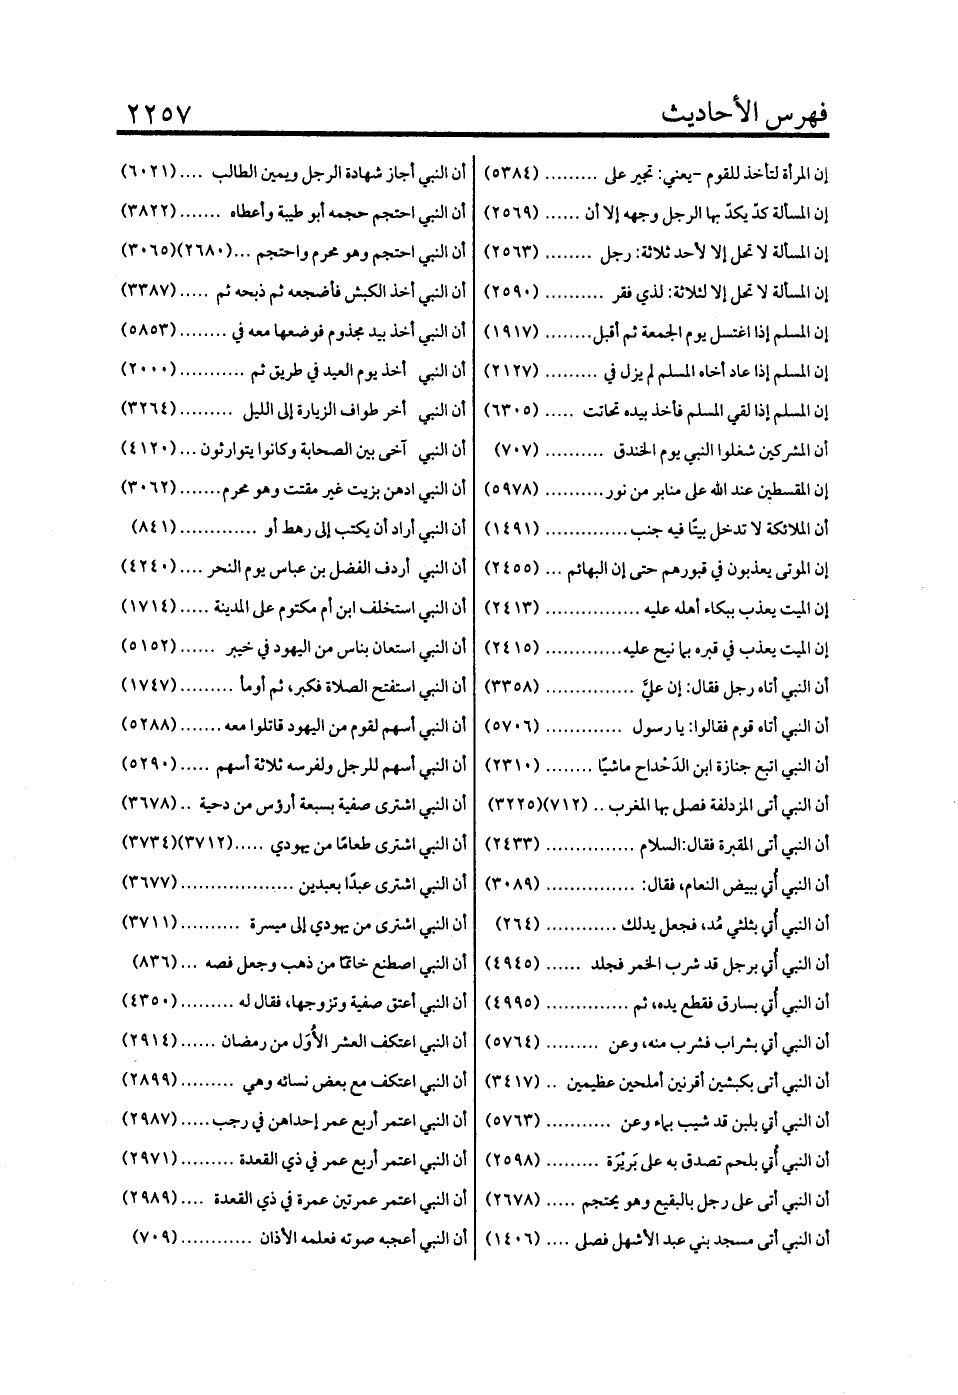 فهرس الأحاديث ٢٢٥٧
إن المرأة لتأخذ للقوم -يعني: تجير على ......... (٥٣٨٤)
إن المسألة كدّ يكدّ بها الرجل وجهه إلا أن ...... (٢٥٦٩)
إن المسألة لا تحل إلا لأحد ثلاثة: رجل ........ (٢٥٦٣)
إن المسألة لا تحل إلا لثلاثة: لذي فقر .......... (٢٥٩٠)
إن المسلم إذا اغتسل يوم الجمعة ثم أقبل........ (١٩١٧)
إن المسلم إذا عاد أخاه المسلم لم يزل في ......... (٢١٢٧)
إن المسلم إذا لقي المسلم فأخذ بيده تحاتت ..... (٦٣٠٥)
أن المشركين شغلوا النبي يوم الخندق .......... (٧٠٧)
إن المقسطين عند الله على منابر من نور.......... (٥٩٧٨)
أن الملائكة لا تدخل بيتًا فيه جنب.............. (١٤٩١)
إن الموتى يعذبون في قبورهم حتى إن البهائم ... (٢٤٥٥)
إن الميت يعذب ببكاء أهله عليه ................ (٢٤١٣)
إن الميت يعذب في قبره بما نيح عليه............. (٢٤١٥)
أن النبي أتاه رجل فقال: إن عليَّ ............... (٣٣٥٨)
أن النبي أتاه قوم فقالوا: يا رسول ............. (٥٧٠٦)
أن النبي اتبع جنازة ابن الدَحْداح ماشيًا ........ (٢٣١٠)
أن النبي أتى المزدلفة فصلى بها المغرب .. (٧١٢)(٣٢٢٥)
أن النبي أتى المقبرة فقال:السلام ............... (٢٤٣٣)
أن النبي أُتي ببيض النعام، فقال: ............... (٣٠٨٩)
أن النبي أُتي بثلثي مُد، فجعل يدلك ............ (٢٦٤)
أن النبي أُتي برجل قد شرب الخمر فجلد ...... (٤٩٤٥)
أن النبي أُتي بسارق فقطع يده، ثم .............. (٤٩٩٥)
أن النبي أتي بشراب فشرب منه، وعن ......... (٥٧٦٤)
أن النبي أتى بكبشين أقرنين أملحين عظيمين .. (٣٤١٧)
أن النبي أتي بلبن قد شيب بماء وعن ........... (٥٧٦٣)
أن النبي أُتي بلحم تصدق به على بَرِيْرَة ......... (٢٥٩٨)
أن النبي أتى على رجل بالبقيع وهو يحتجم ..... (٢٦٧٨)
أن النبي أتى مسجد بني عبد الأشهل فصلى .... (١٤٠٦)
أن النبي أجاز شهادة الرجل ويمين الطالب .... (٦٠٢١)
أن النبي احتجم حجمه أبو طيبة وأعطاه ....... (٣٨٢٢)
أن النبي احتجم وهو محرم واحتجم ...(٢٦٨٠)(٣٠٦٥)
أن النبي أخذ الكبش فأضجعه ثم ذبحه ثم ..... (٣٣٨٧)
أن النبي أخذ بيد مجذوم فوضعها معه في ........ (٥٨٥٣)
أن النبي أخذ يوم العيد في طريق ثم ........... (٢٠٠٠)
أن النبي أخر طواف الزيارة إلى الليل ......... (٣٢٦٤)
أن النبي آخى بين الصحابة وكانوا يتوارثون ... (٤١٢٠)
أن النبي ادهن بزيت غير مقتت وهو محرم....... (٣٠٦٢)
أن النبي أراد أن يكتب إلى رهط أو ............. (٨٤١)
أن النبي أردف الفضل بن عباس يوم النحر .... (٤٢٤٠)
أن النبي استخلف ابن أم مكتوم على المدينة ..... (١٧١٤)
أن النبي استعان بناس من اليهود في خيبر ...... (٥١٥٢)
أن النبي استفتح الصلاة فكبر، ثم أومأ ......... (١٧٤٧)
أن النبي أسهم لقوم من اليهود قاتلوا معه ....... (٥٢٨٨)
أن النبي أسهم للرجل ولفرسه ثلاثة أسهم ..... (٥٢٩٠)
أن النبي اشترى صفية بسبعة أرؤس من دحية .. (٣٦٧٨)
أن النبي اشترى طعامًا من يهودي .....(٣٧١٢)(٣٧٣٤)
أن النبي اشترى عبدًا بعبدين .................. (٣٦٧٧)
أن النبي اشترى من يهودي إلى ميسرة .......... (٣٧١١)
أن النبي اصطنع خاتمًا من ذهب وجعل فصه ... (٨٣٦)
أن النبي أعتق صفية وتزوجها، فقال له ......... (٤٣٥٠)
أن النبي اعتكف العشر الأُوَل من رمضان ...... (٢٩١٤)
أن النبي اعتكف مع بعض نسائه وهي ......... (٢٨٩٩)
أن النبي اعتمر أربع عمر إحداهن في رجب..... (٢٩٨٧)
أن النبي اعتمر أربع عمر في ذي القعدة ......... (٢٩٧١)
أن النبي اعتمر عمرتين عمرة في ذي القعدة .... (٢٩٨٩)
أن النبي أعجبه صوته فعلمه الأذان ............ (٧٠٩)